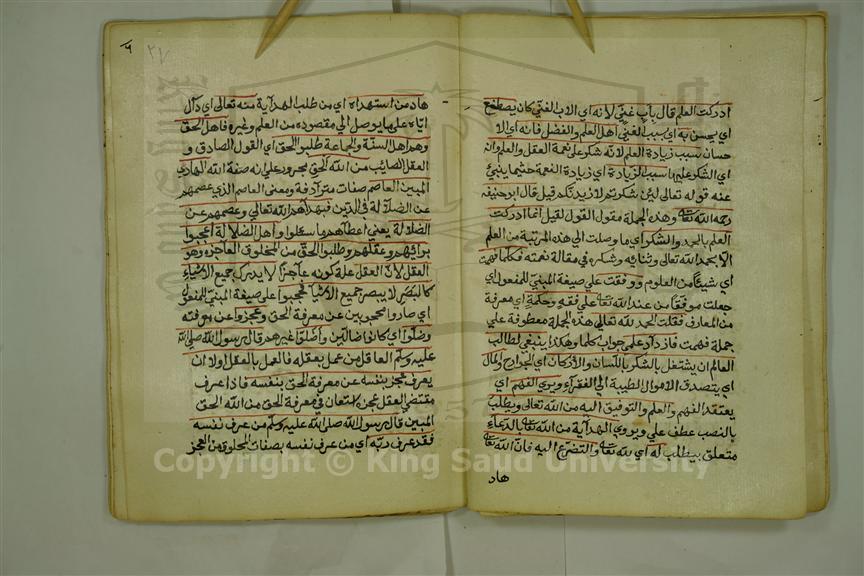 ادركت العلم قال بابٍ غنيّ لانه اي الاب الغنيّ كان يصطنع
اي يحسن به اي بسبب الغنيّ اهل العلم والفضل فانه اي الا
حسان سبب زيادة العلم لانه شكر على نعمة العقل والعلم وانه
اي الشكر عليهما سبب الزيادة اي زيادة النعمة حثيما ينبئ
عنه قوله تعالى لئن شكرتم لازيدنكم قيل قال ابو حنيفة
رحمه الله تعالى وهذه الجملة مقول القول لقيل انما ادركت
العلم بالحمد والشكر اي ما وصلت الي هذه المرتبة من العلم
الا بحمد الله تعالى وثنايه وشكره في مقالة نعمته فكلما فهمت
اي شيئا من العلوم ووفقت علي صيغة المبنيّ المفعول اي
جعلت موفقا من عند الله تعا علي فقه وحكمةٍ اي معرفة
من المعارف فقلت الحمد لله تعالى هذه الجملة معطوفة علي
جملة فهمت فازداد علمي جواب كلما وهكذا ينبغي لطالب
العالم ان يشتغل بالشكر باللسان والاركان اي الجوارح والمال
اي يتصدق الاموال الطيبة الي الفقرآء ويروي الفهم اي
يعتقد الفهم والعلم والتوفيق اليه من الله تعالى ويطلب
بالنصب عطف علي ويروي الهداية من الله تعا بالدعآء
متعلق بيطلب له اي لله تعا والتضرّع اليه فانّ الله تعا
هاد
٦ ٢٧
هاد من استهداه اي من طلب الهدآية منه تعالى اي دآل
ايّاه علي ما يوصل الي مقصوده من العلم وغيره فاهل الحق
وهم اهل السنّة والجماعة طلبوا الحق اي القول الصادق و
العقل الصايب من الله الحق بجرور علي انه صفة الله الهادي
المبين العاصم صفات مترادفة ومعني العاصم الذي عصمهم
عن الضلالة في الدّين فهداهم الله تعالى وعصمهم عن
الضلالة يعني اعطاهم ما سئلوا واهل الضلالة اعجبوا
برائهم وعقلهم وطلبوا الحق من المخلوق العاجز وهو
العقل لانّ العقل علة كونه عاجزًا لا يدرك جميع الاشياء
كالبصر لا يبصر جميع الاشيآ فحجبوا علي صيغة المبنيّ المفعول
اي صاروا محجوبين عن معرفة الحق وعجزوا عن معرفته
وضلّوا اي كانوا ضالين واضلّوا غيرهم قال رسول الله صلي الله
عليه وسلم العاقل من عمل بعقله فالعمل بالعقل اولا ان
يعرف عجز بنفسه عن معرفة الحق بنفسه فاذا عرف
مقتضي العقل عجزه استعان في معرفة الحق من الله الحق
المبين قال رسول الله صلي الله عليه وسلم من عرف نفسه
فقد عرف ربّه اي من عرف نفسه بصفات المخلوق من العجز
Copyright © King Saud University